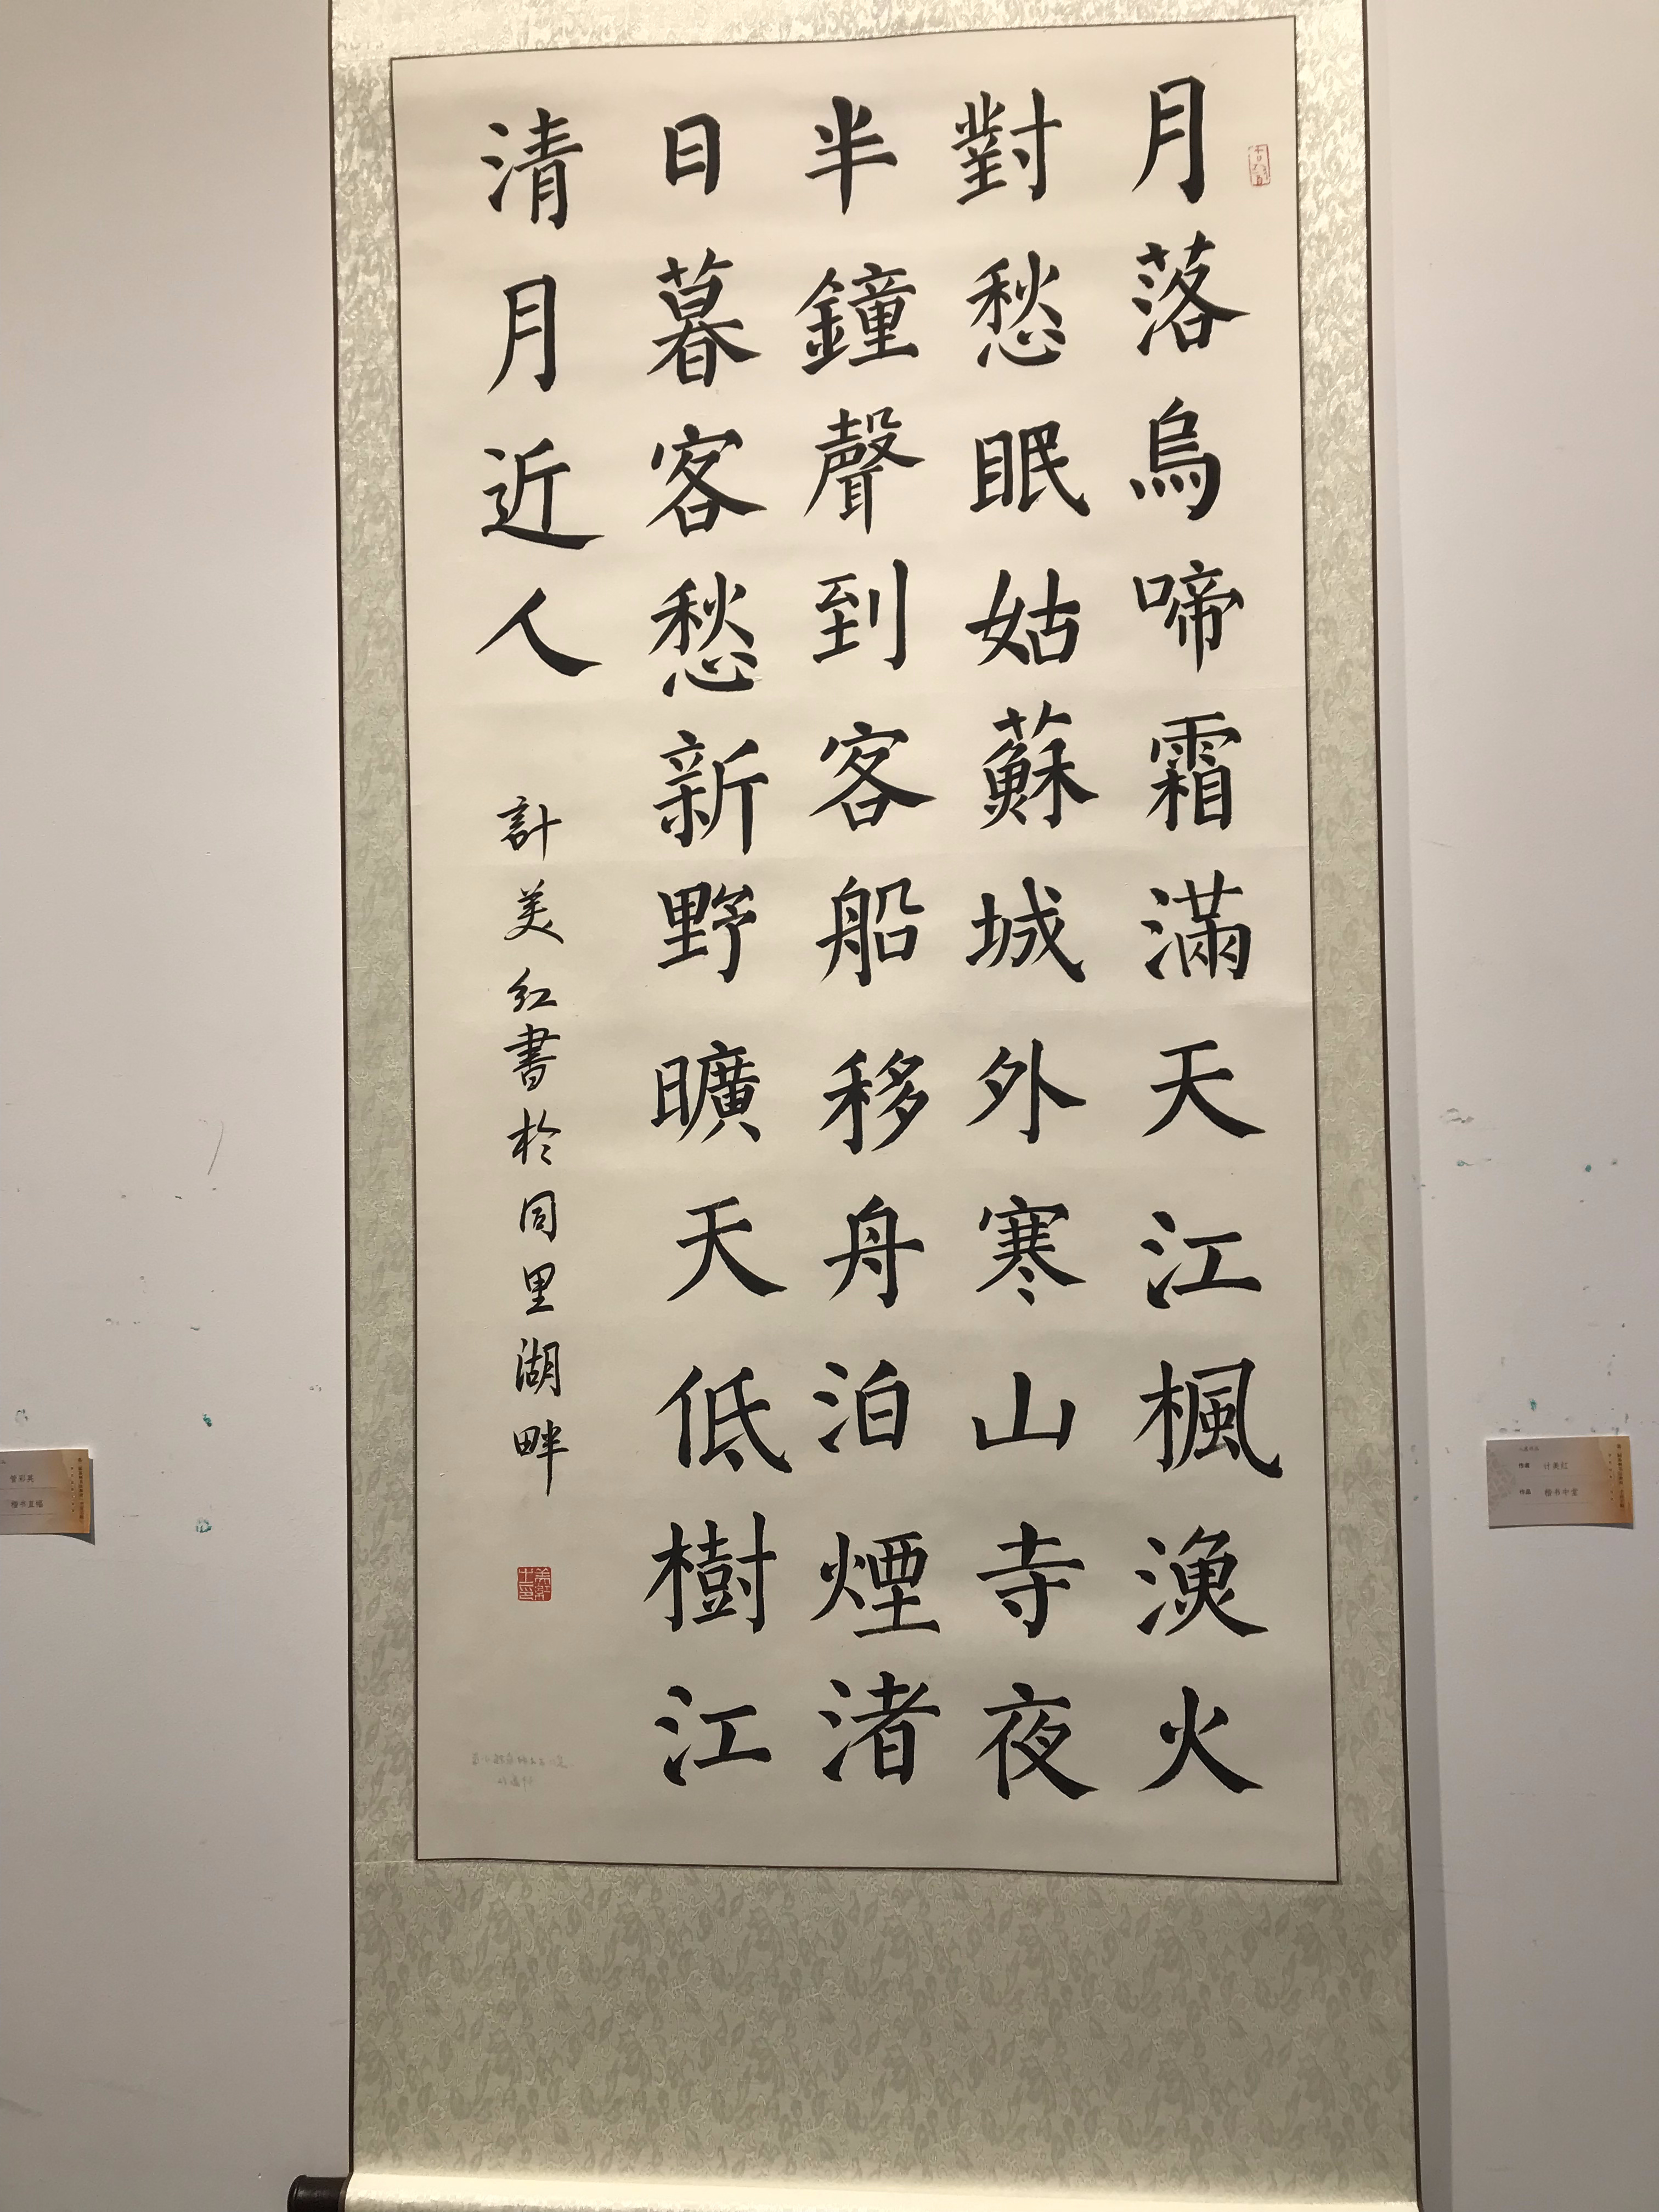 月落烏啼霜滿天江楓漁火
對愁眠姑蘇城外寒山寺夜
半鐘聲到客船移舟泊煙渚
日暮客愁新野曠天低樹江
清月近人
計美紅書於同里湖畔
作者 计美红
作品 楷书中堂
管彩英
楷书直幅